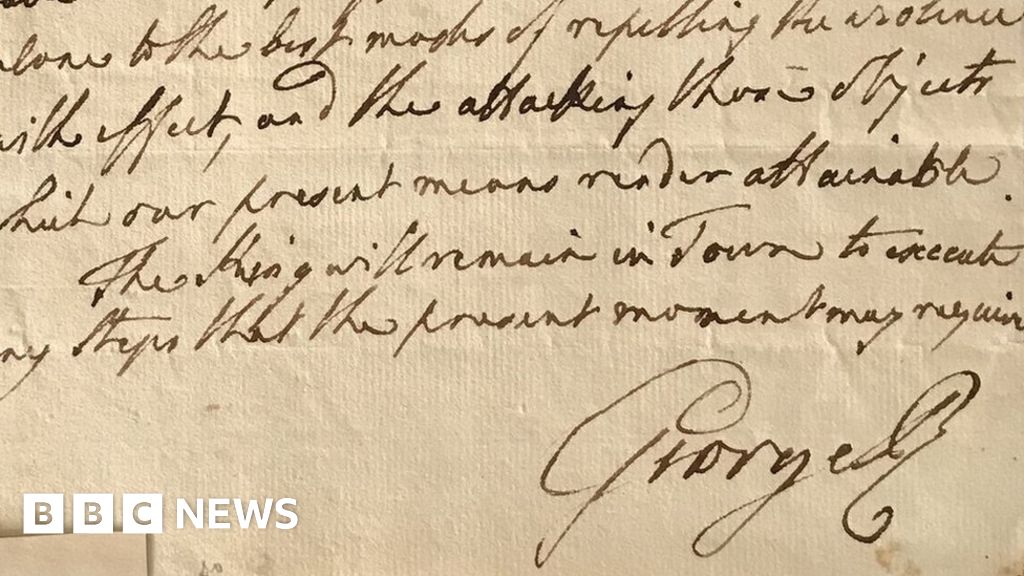 alone to the best modes of repelling the violence
with effect, and the attacking those objects
which our present means render attainable.
The King will remain in Town to execute
any steps that the present moment may require
George R
BBC NEWS